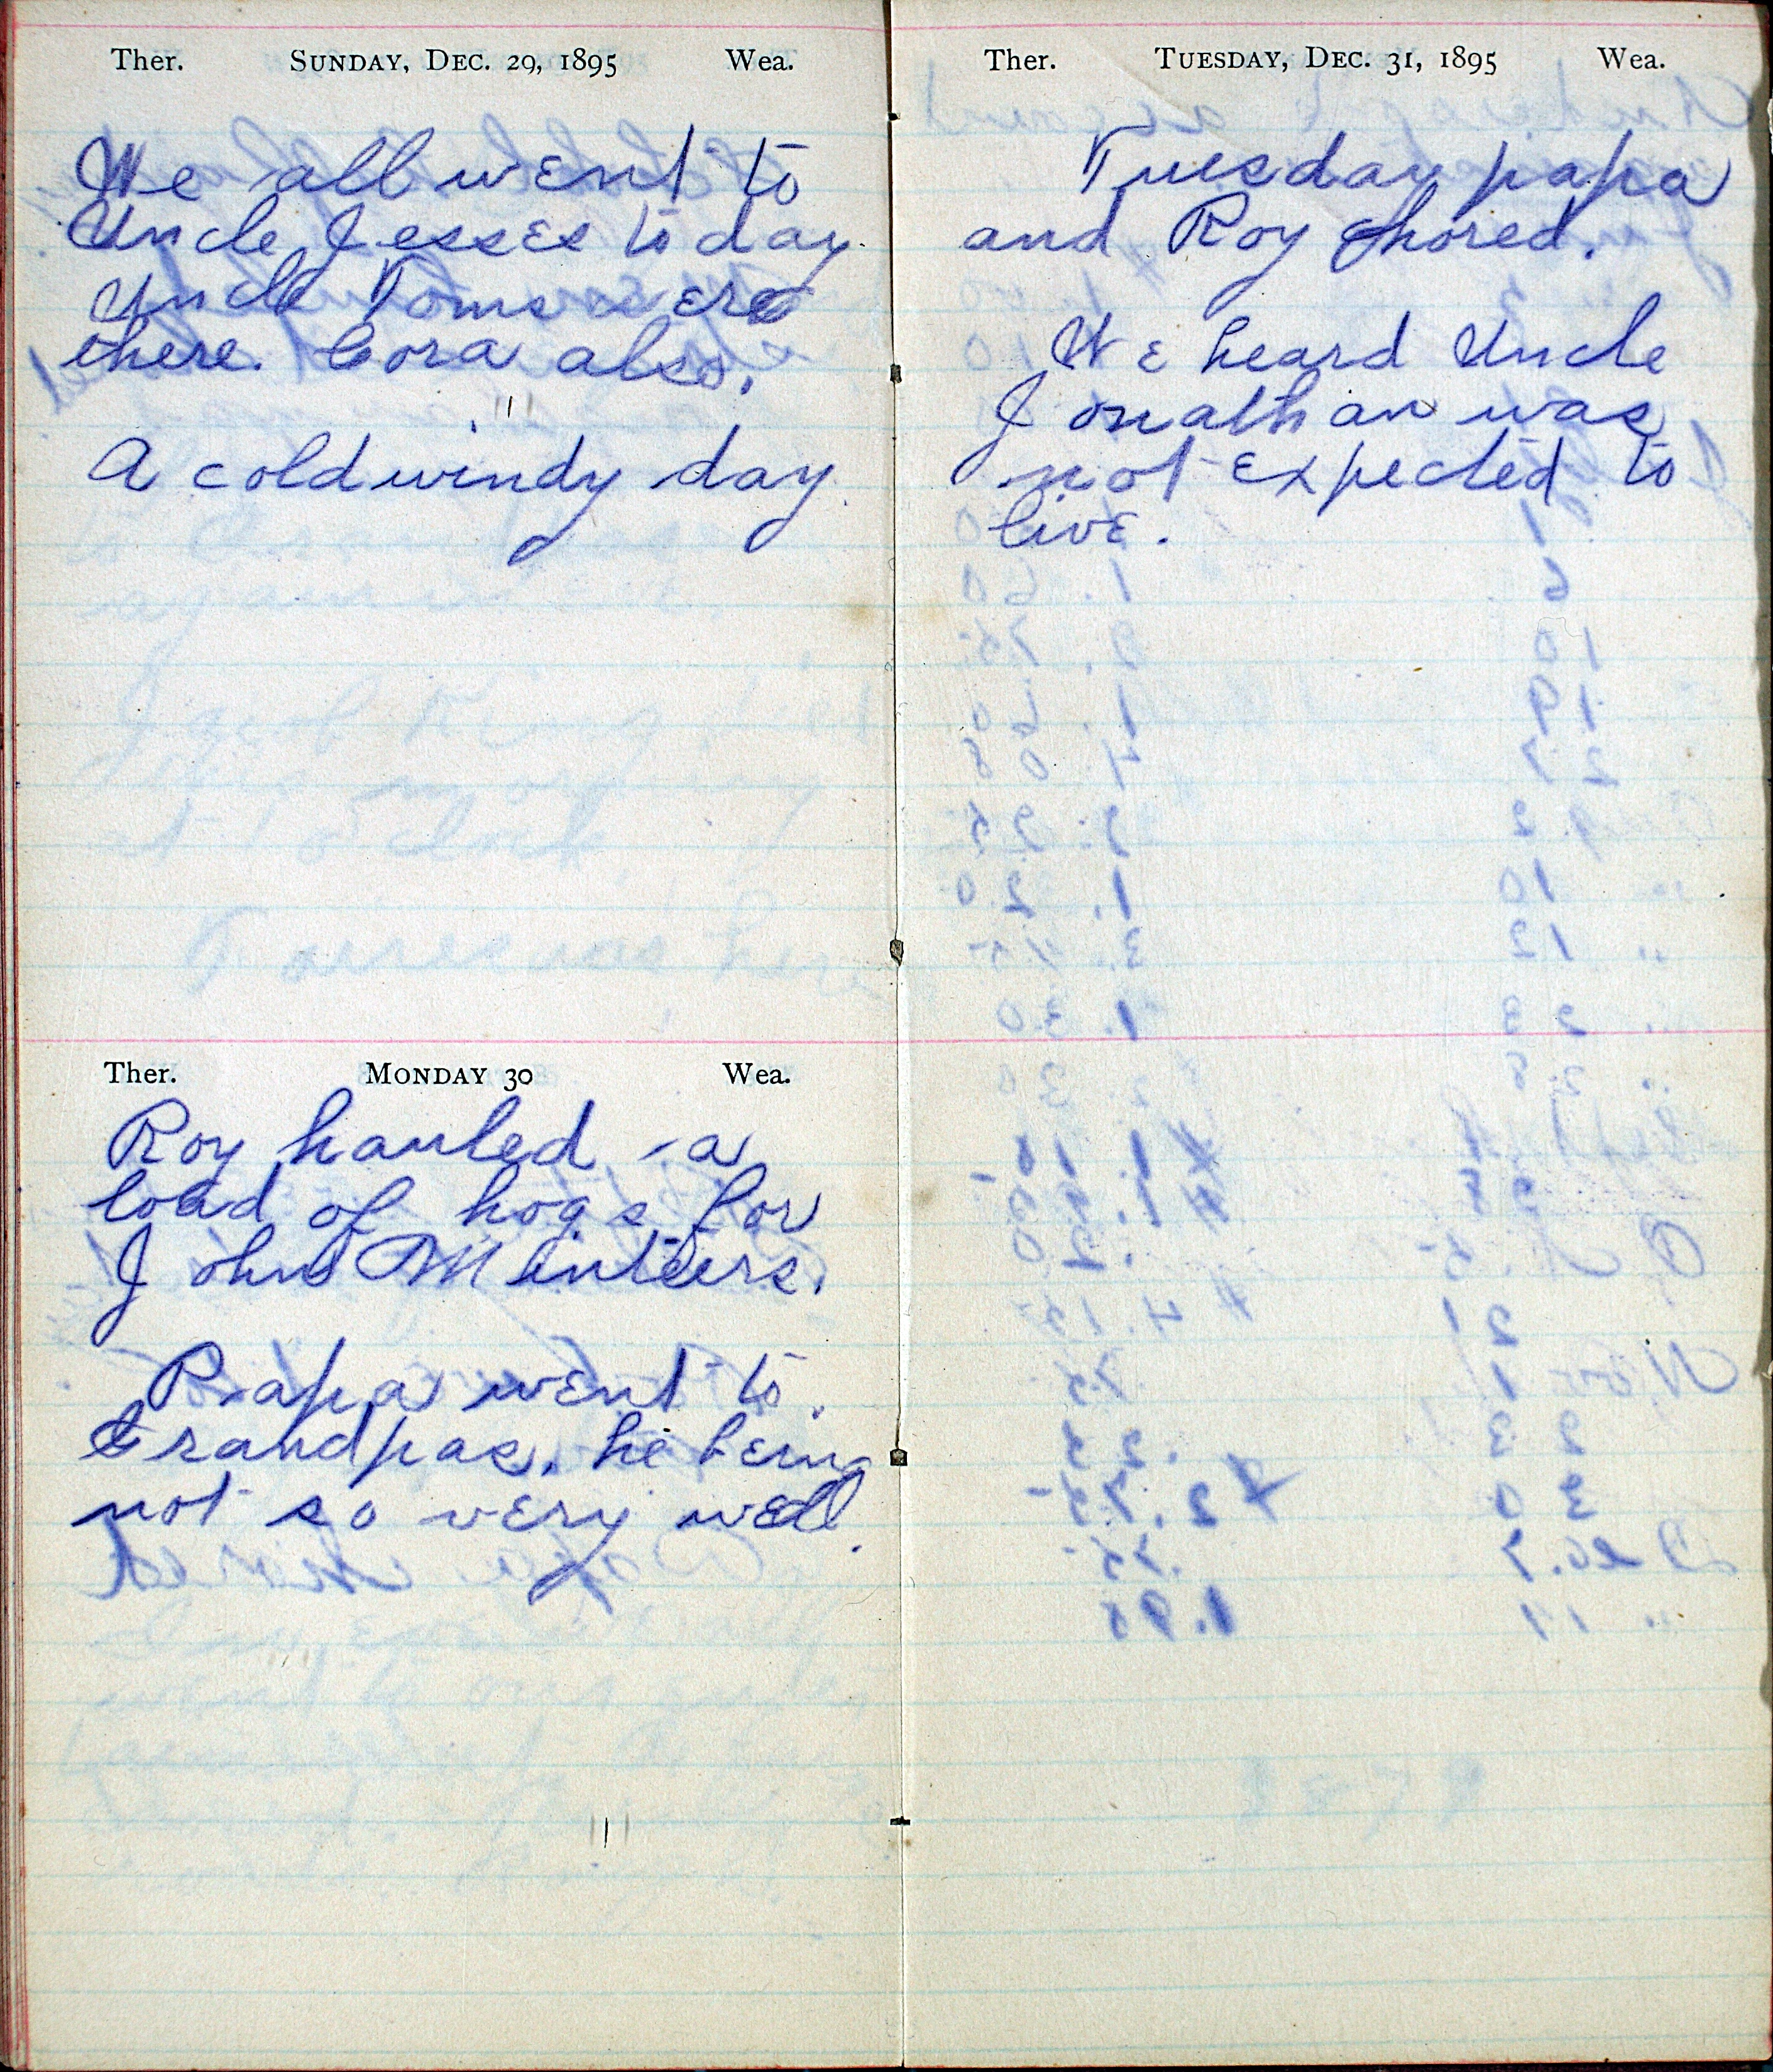 Ther. SUNDAY, DEC. 29, 1895 Wea.
We all went to
Uncle Jesses to day.
Uncle Toms were
there. Cora also.
A cold windy day.
Ther. MONDAY 30 Wea.
Roy hauled a
load of hogs for
John Minteers.
Papa went to
Grandpas, he being
not so very well.
Ther. TUESDAY, DEC. 31, 1895 Wea.
Tuesday papa
and Roy chored.
We heard Uncle
Jonathan was
not expected to
live.